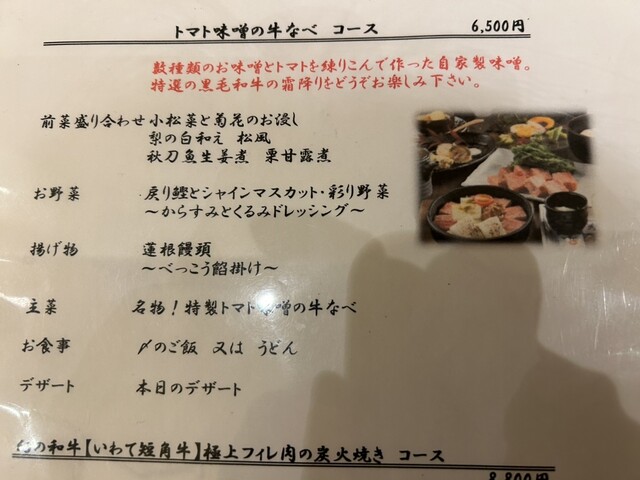 トマト味噌の牛なべ コース 6,500円
数種類のお味噌とトマトを練りこんで作った自家製味噌。
特選の黒毛和牛の霜降りをどうぞお楽しみ下さい。
前菜盛り合わせ 小松菜と菊花のお浸し
梨の白和え 松風
秋刀魚生姜煮 栗甘露煮
お野菜 戻り鰹とシャインマスカット・彩り野菜
～からすみとくるみドレッシング～
揚げ物 蓮根饅頭
～べっこう餡掛け～
主菜 名物！特製トマト味噌の牛なべ
お食事 〆のご飯 又は うどん
デザート 本日のデザート
の和牛【いわて短角牛】極上フィレ肉の炭火焼き コース
8,800円